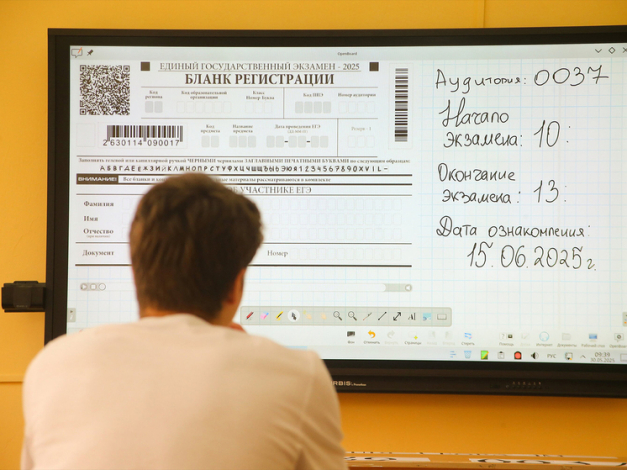 OpenBoard
ЕДИНЫЙ ГОСУДАРСТВЕННЫЙ ЭКЗАМЕН - 2025
БЛАНК РЕГИСТРАЦИИ
Код региона
Код образовательной организации
Класс
Номер Буква
Код ППЭ
Номер аудитории
2630114090017
Код предмета
Название предмета
Дата проведения ЕГЭ
Заполнять гелевой или капиллярной ручкой ЧЕРНЫМИ чернилами ЗАГЛАВНЫМИ ПЕЧАТНЫМИ БУКВАМИ по следующим образцам:
ВНИМАНИЕ!
УЧАСТНИКЕ ЕГЭ
Фамилия
Имя
Отчество
Документ
Номер
Аудитория: 0037
Начало
экзамена: 10:
Окончание
экзамена: 13:
Дата ознакомления:
15.06.2025г.
РУС
09:39
30.05.2025